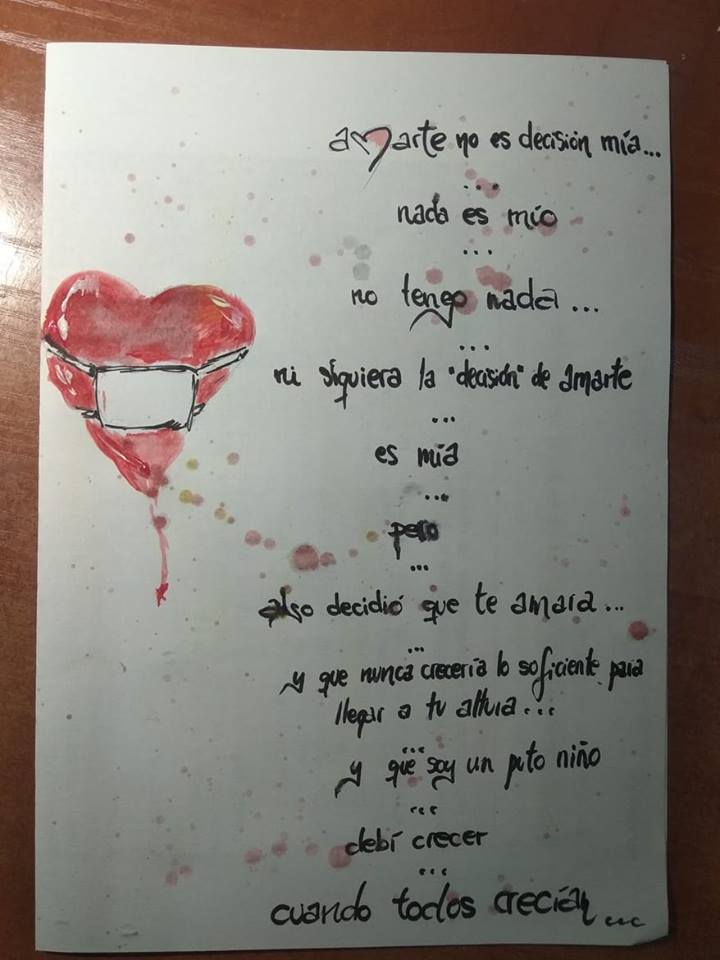 amarte no es decisión mía...
...
nada es mío
...
no tengo nada...
...
ni siquiera la "decisión" de amarte
...
es mía
...
pero
...
algo decidió que te amara...
...
y que nunca crecería lo soficiente para
llegar a tu altura...
...
y que soy un puto niño
...
debí crecer
...
cuando todos crecían...